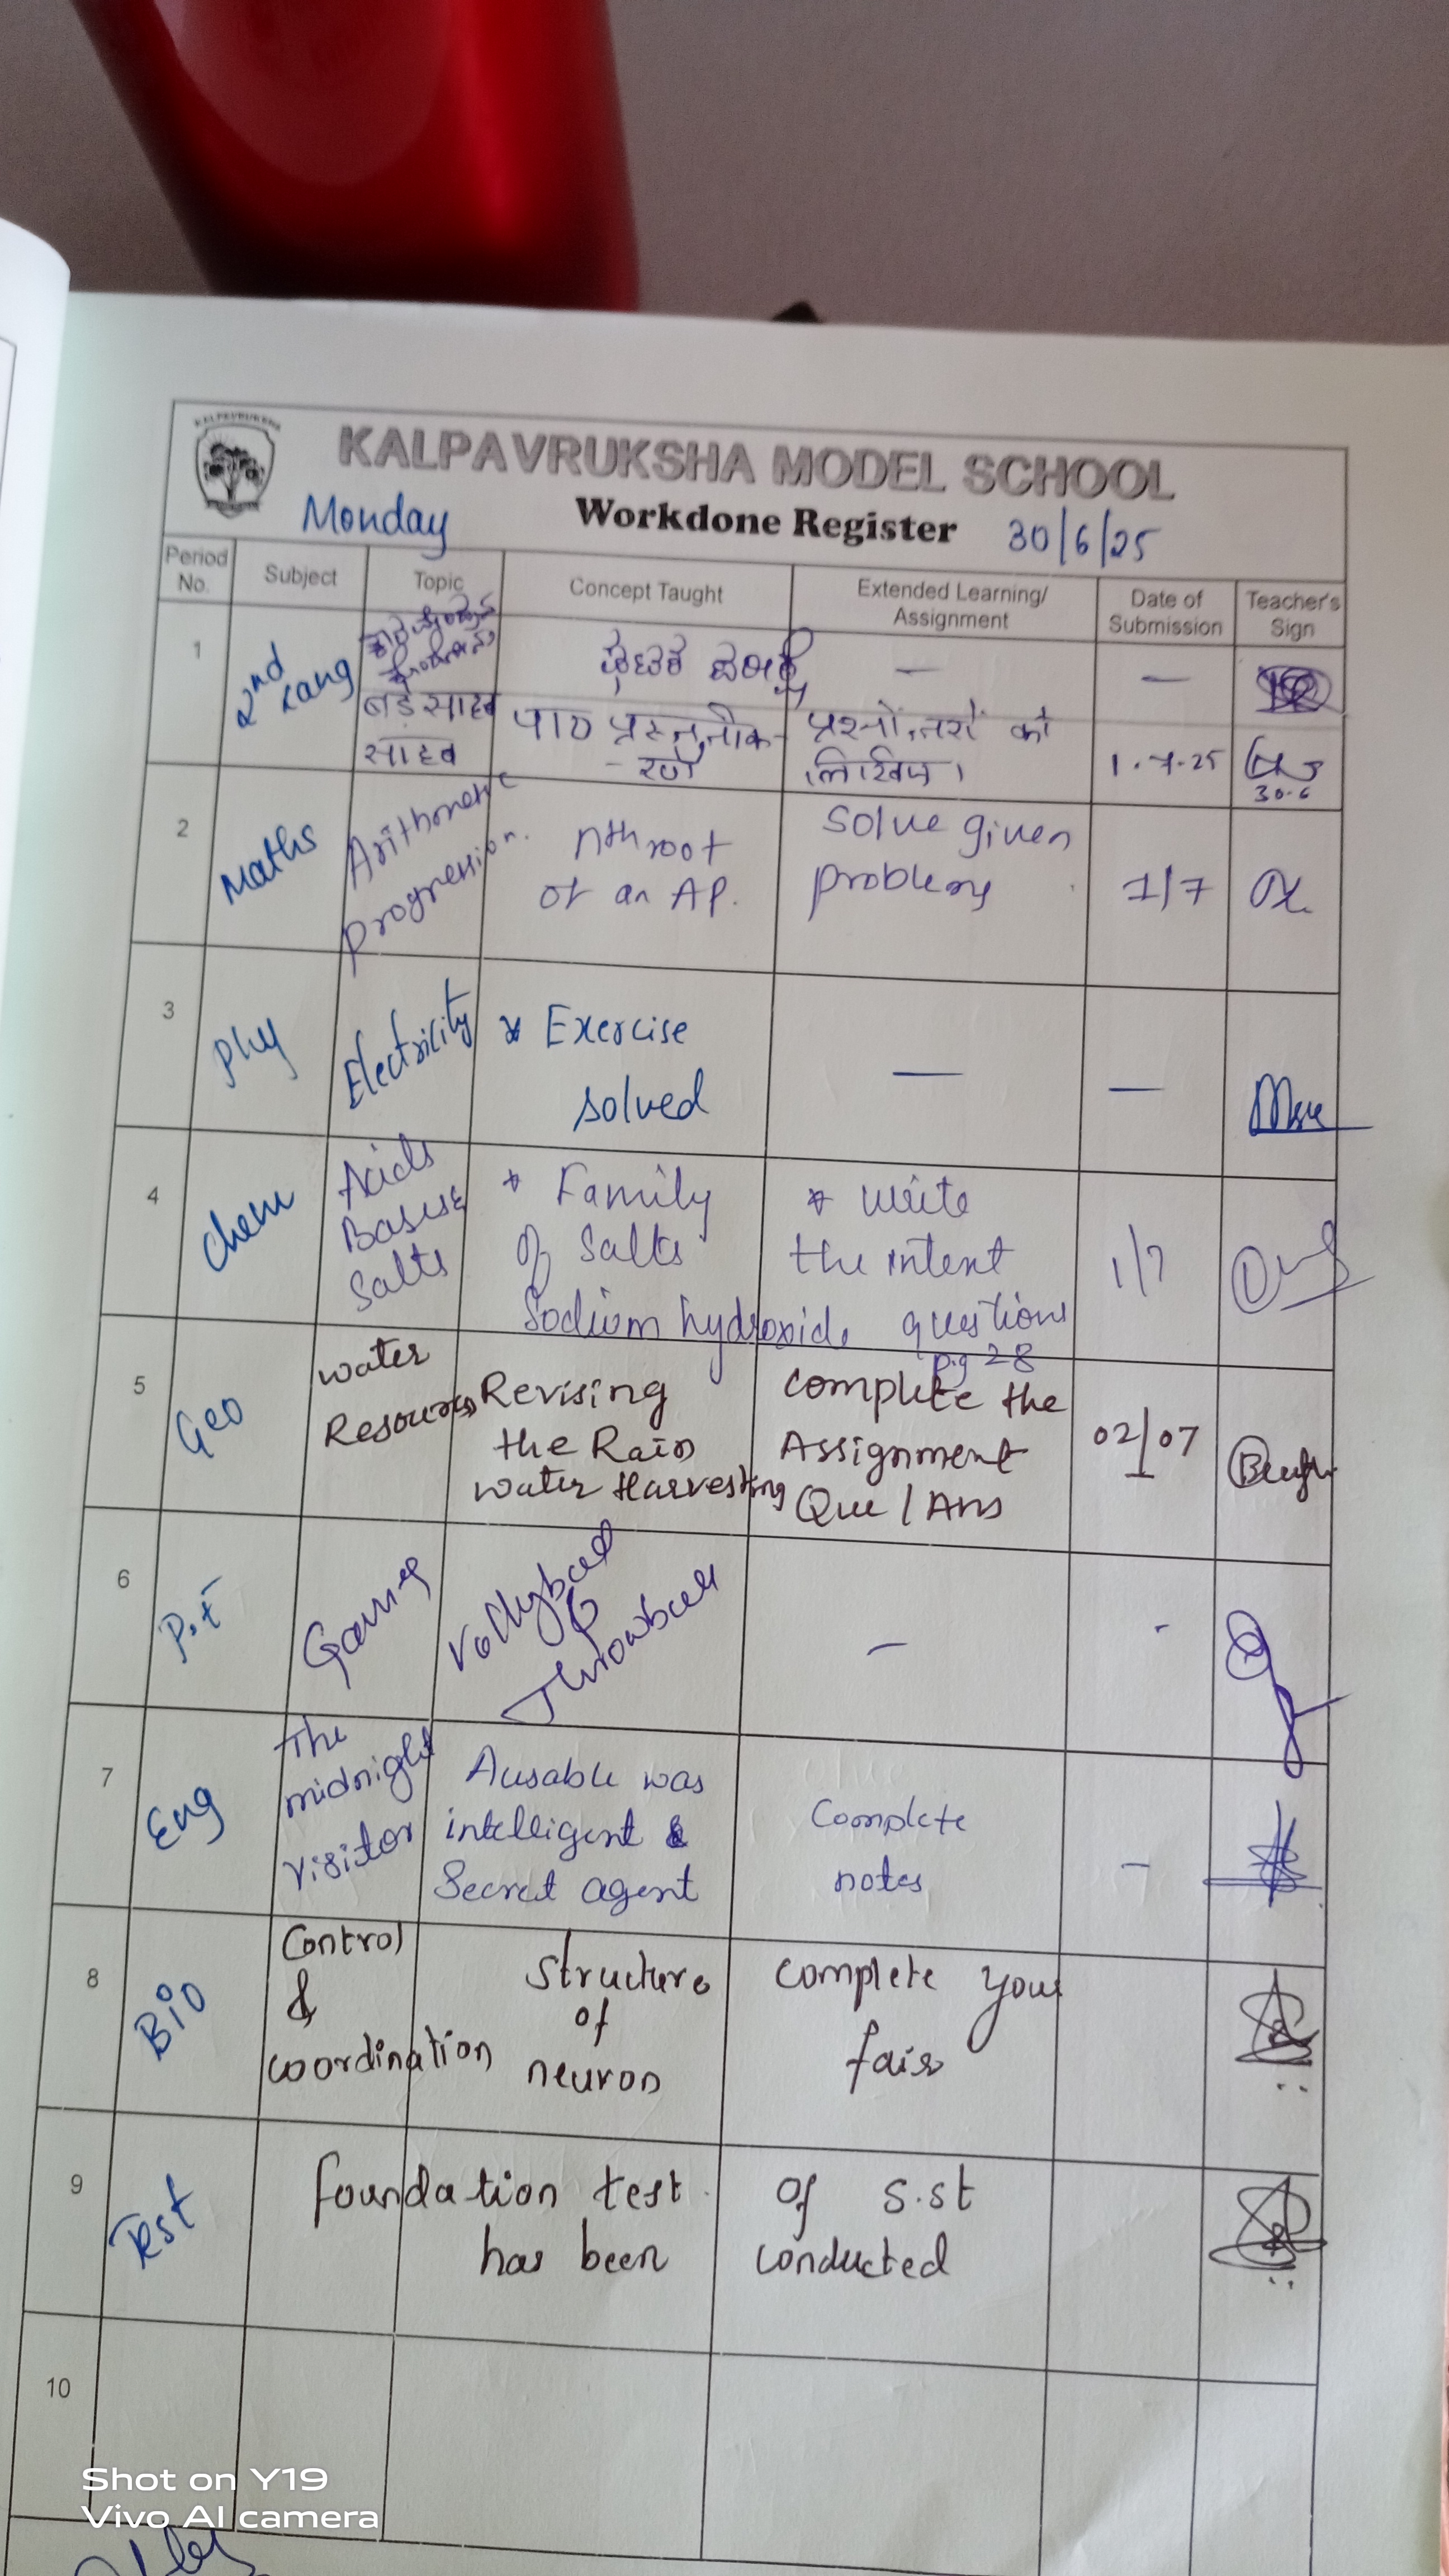 KALPAVRUKSHA
KALPAVRUKSHA MODEL SCHOOL
Monday
Workdone Register
30/6/25
Period No.
Subject
Topic
Concept Taught
Extended Learning/ Assignment
Date of Submission
Teacher's Sign
1
2nd Lang
—
—
बडे साहब
साहब
पाठ
प्रश्नोंत्तरों को
लिखिए।
1.7.25
30.6
2
Maths
Arithmetic
progression.
nth root
of an AP.
Solve given
problems
1/7
3
Phy
Electricity
* Exercise
solved
—
—
4
Chem
Acids
Bases &
Salts
* Family
of Salts
Sodium hydroxide
* Write
the intext
questions
pg 28
1/7
5
Geo
Water
Resources
Revising
the Rain
water Harvesting
Complete the
Assignment
Que / Ans
02/07
6
P.E
Games
Vollyball
&
Throwball
–
-
7
Eng
The
midnight
visitor
Ausable was
intelligent &
Secret agent
Complete
notes
–
8
Bio
Control
&
coordination
structure
of
neuron
complete your
fair
9
Test
foundation test of S.St
has been conducted
10
Shot on Y19
Vivo AI camera